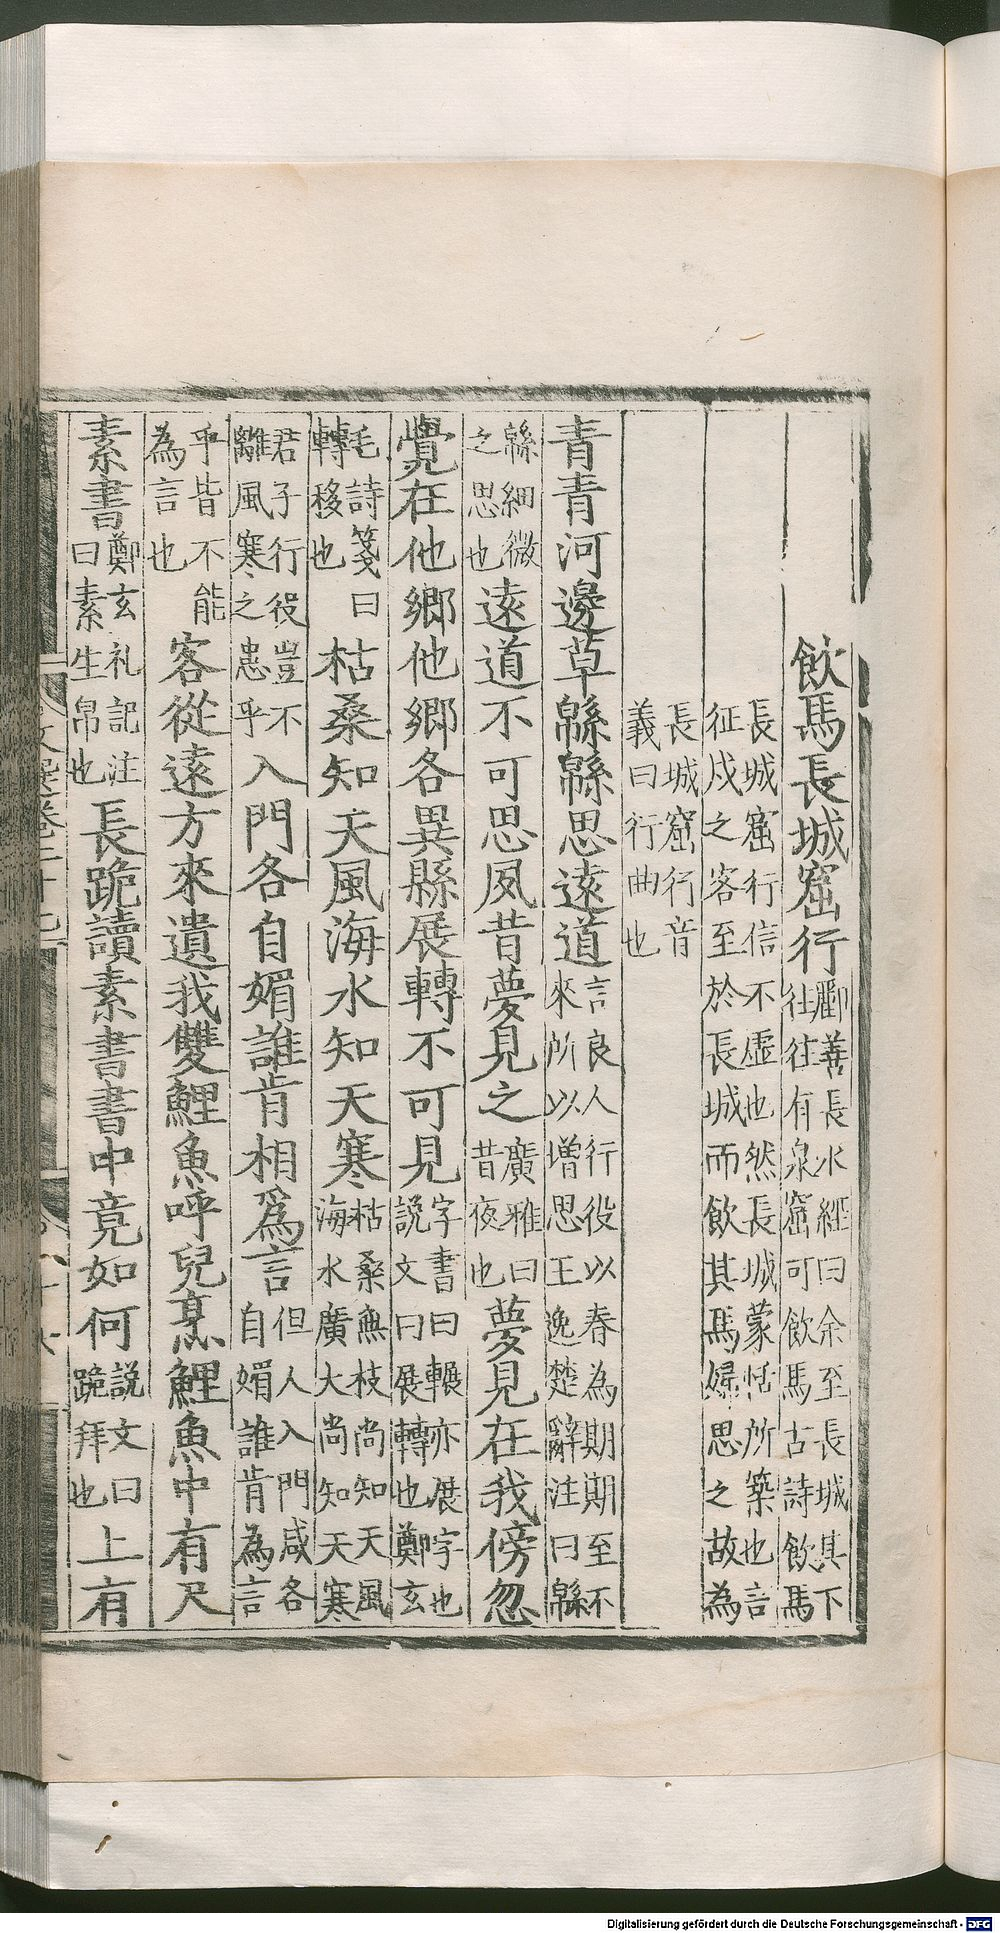 飲馬長城窟行酈善長水經曰余至長城其下往往有泉窟可飲馬古詩飲馬
長城窟行信不虛也然長城蒙恬所築也言征戍之客至於長城而飲其馬婦思之故為
長城窟行音義曰行曲也
青青河邊草緜緜思遠道言良人行役以春為期期至不來所以增思王逸楚辭注曰緜
緜細微之思也遠道不可思夙昔夢見之廣雅曰昔夜也夢見在我傍忽
覺在他鄉他鄉各異縣展轉不可見字書曰輾亦展字也說文曰展轉也鄭玄
毛詩箋曰轉移也枯桑知天風海水知天寒枯桑無枝尚知天風海水廣大尚知天寒
君子行役豈不離風寒之患乎入門各自媚誰肯相為言但人入門咸各自媚誰肯為言
乎皆不能為言也客從遠方來遺我雙鯉魚呼兒烹鯉魚中有尺
素書鄭玄礼記注曰素生帛也長跪讀素書書中竟如何說文曰跪拜也上有
Digitalisierung gefördert durch die Deutsche Forschungsgemeinschaft - DFG